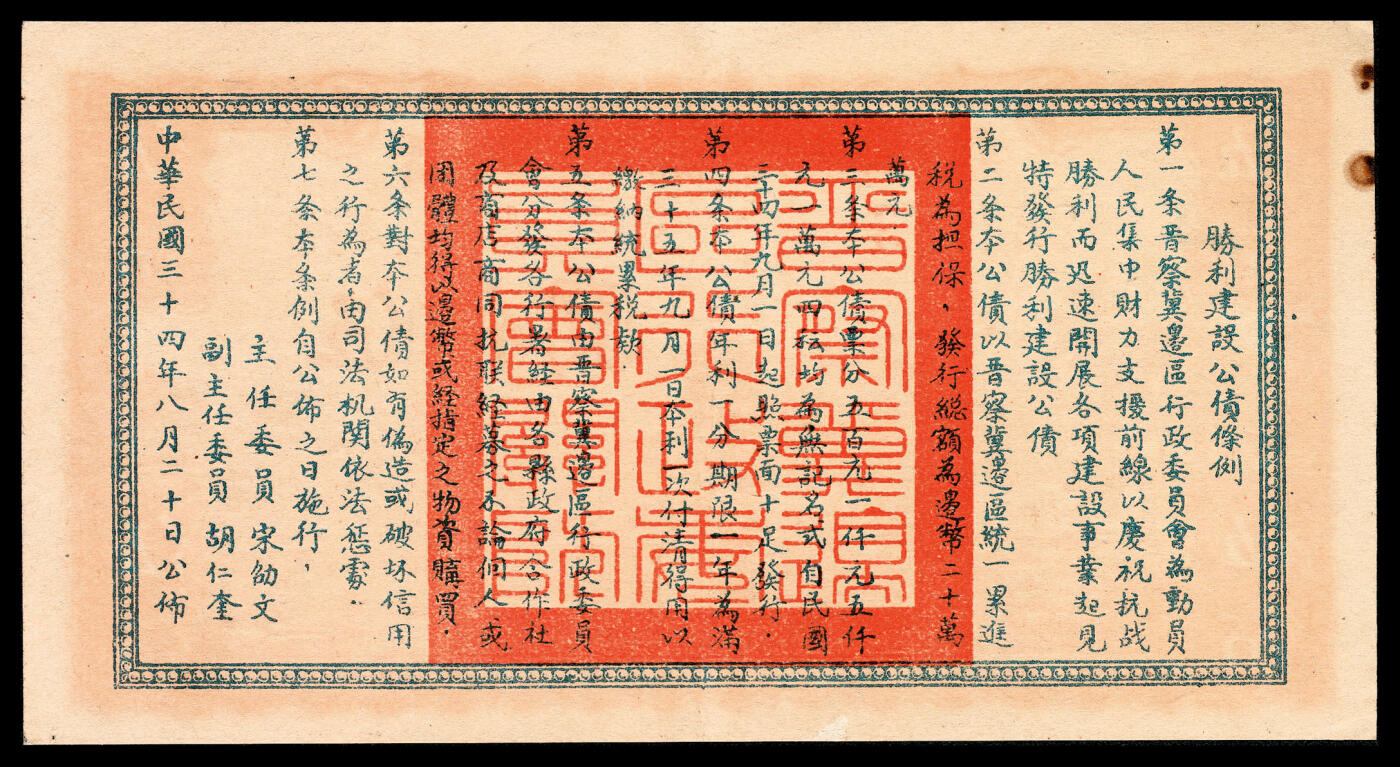 勝利建設公債條例
第一条晋察冀邊區行政委員會為動員
人民集中財力支援前線以慶祝抗战
勝利而迅速開展各項建設事業起見
特發行勝利建設公債
第二条本公債以晋察冀邊區統一累進
税為担保，發行総額為邊幣二十萬
萬元
第三条本公債票分五百元一仟元五仟
元一萬元四种均為無記名式自民國
三十四年九月一日起照票面十足發行．
第四条本公債年利一分期限一年為滿
三十五年九月一日本利一次付清得用以
繳納統累税款．
第五条本公債由晋察冀邊區行政委員
會分發各行署経由各縣政府合作社
及商店商同抗联経募之不論何人或
团體均得以邊幣或経指定之物資購買．
第六条對本公債如有偽造或破坏信用
之行為者由司法机関依法惩處．
第七条本条例自公佈之日施行，
主任委員宋劭文
副主任委員胡仁奎
中華民國三十四年八月二十日公佈
晉察冀邊
區行政委
員會